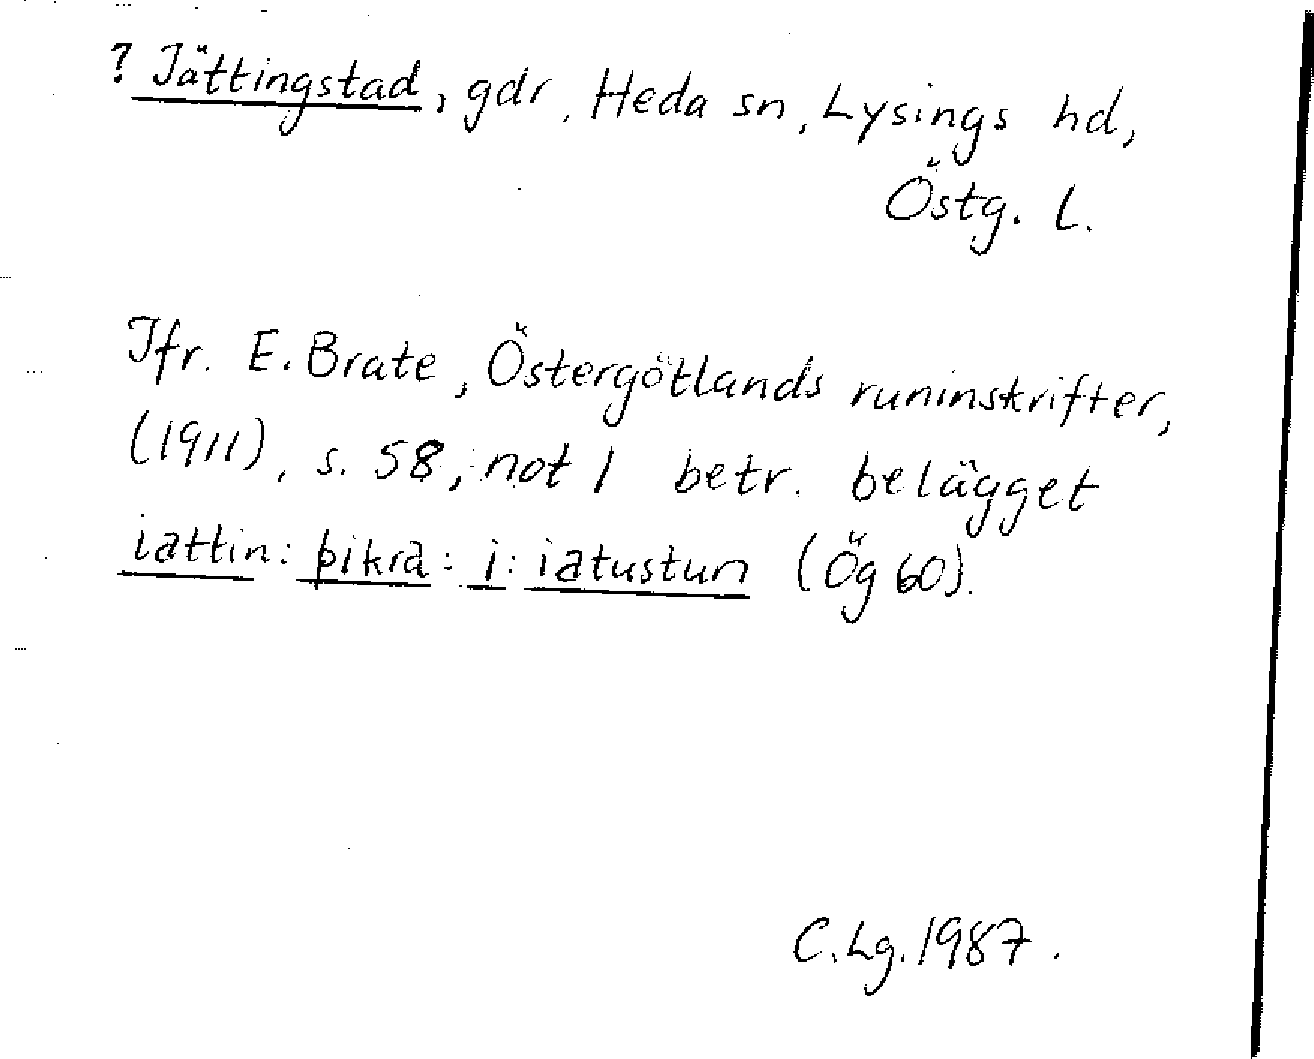 ? Jättingstad, gdr, Heda sn, Lysings hd,
Östg. L.
Jfr. E. Brate, Östergötlands runinskrifter,
(1911), s. 58, not 1 betr. belägget
iattin: þikra: i: iatustun (Ög 60).
C. Lg. 1987.